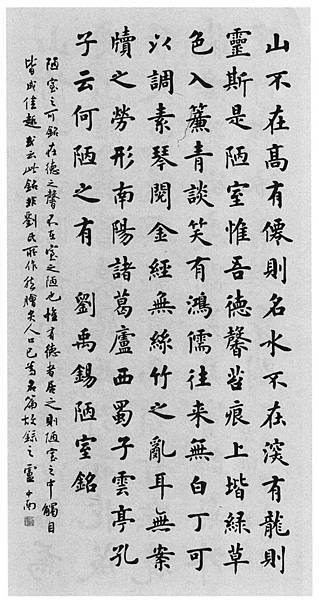 山不在高有僊則名水不在深有龍則
靈斯是陋室惟吾德馨苔痕上堦綠草
色入簾青談笑有鴻儒往来無白丁可
以調素琴閱金經無絲竹之亂耳無案
牘之勞形南陽諸葛廬西蜀子雲亭孔
子云何陋之有 劉禹錫陋室銘
陋室之可銘在德之馨不在室之陋也惟有德者居之則陋室之中觸目
皆成佳趣或云此銘非劉氏所作然膾炙人口已為名篇故錄之 盧中南